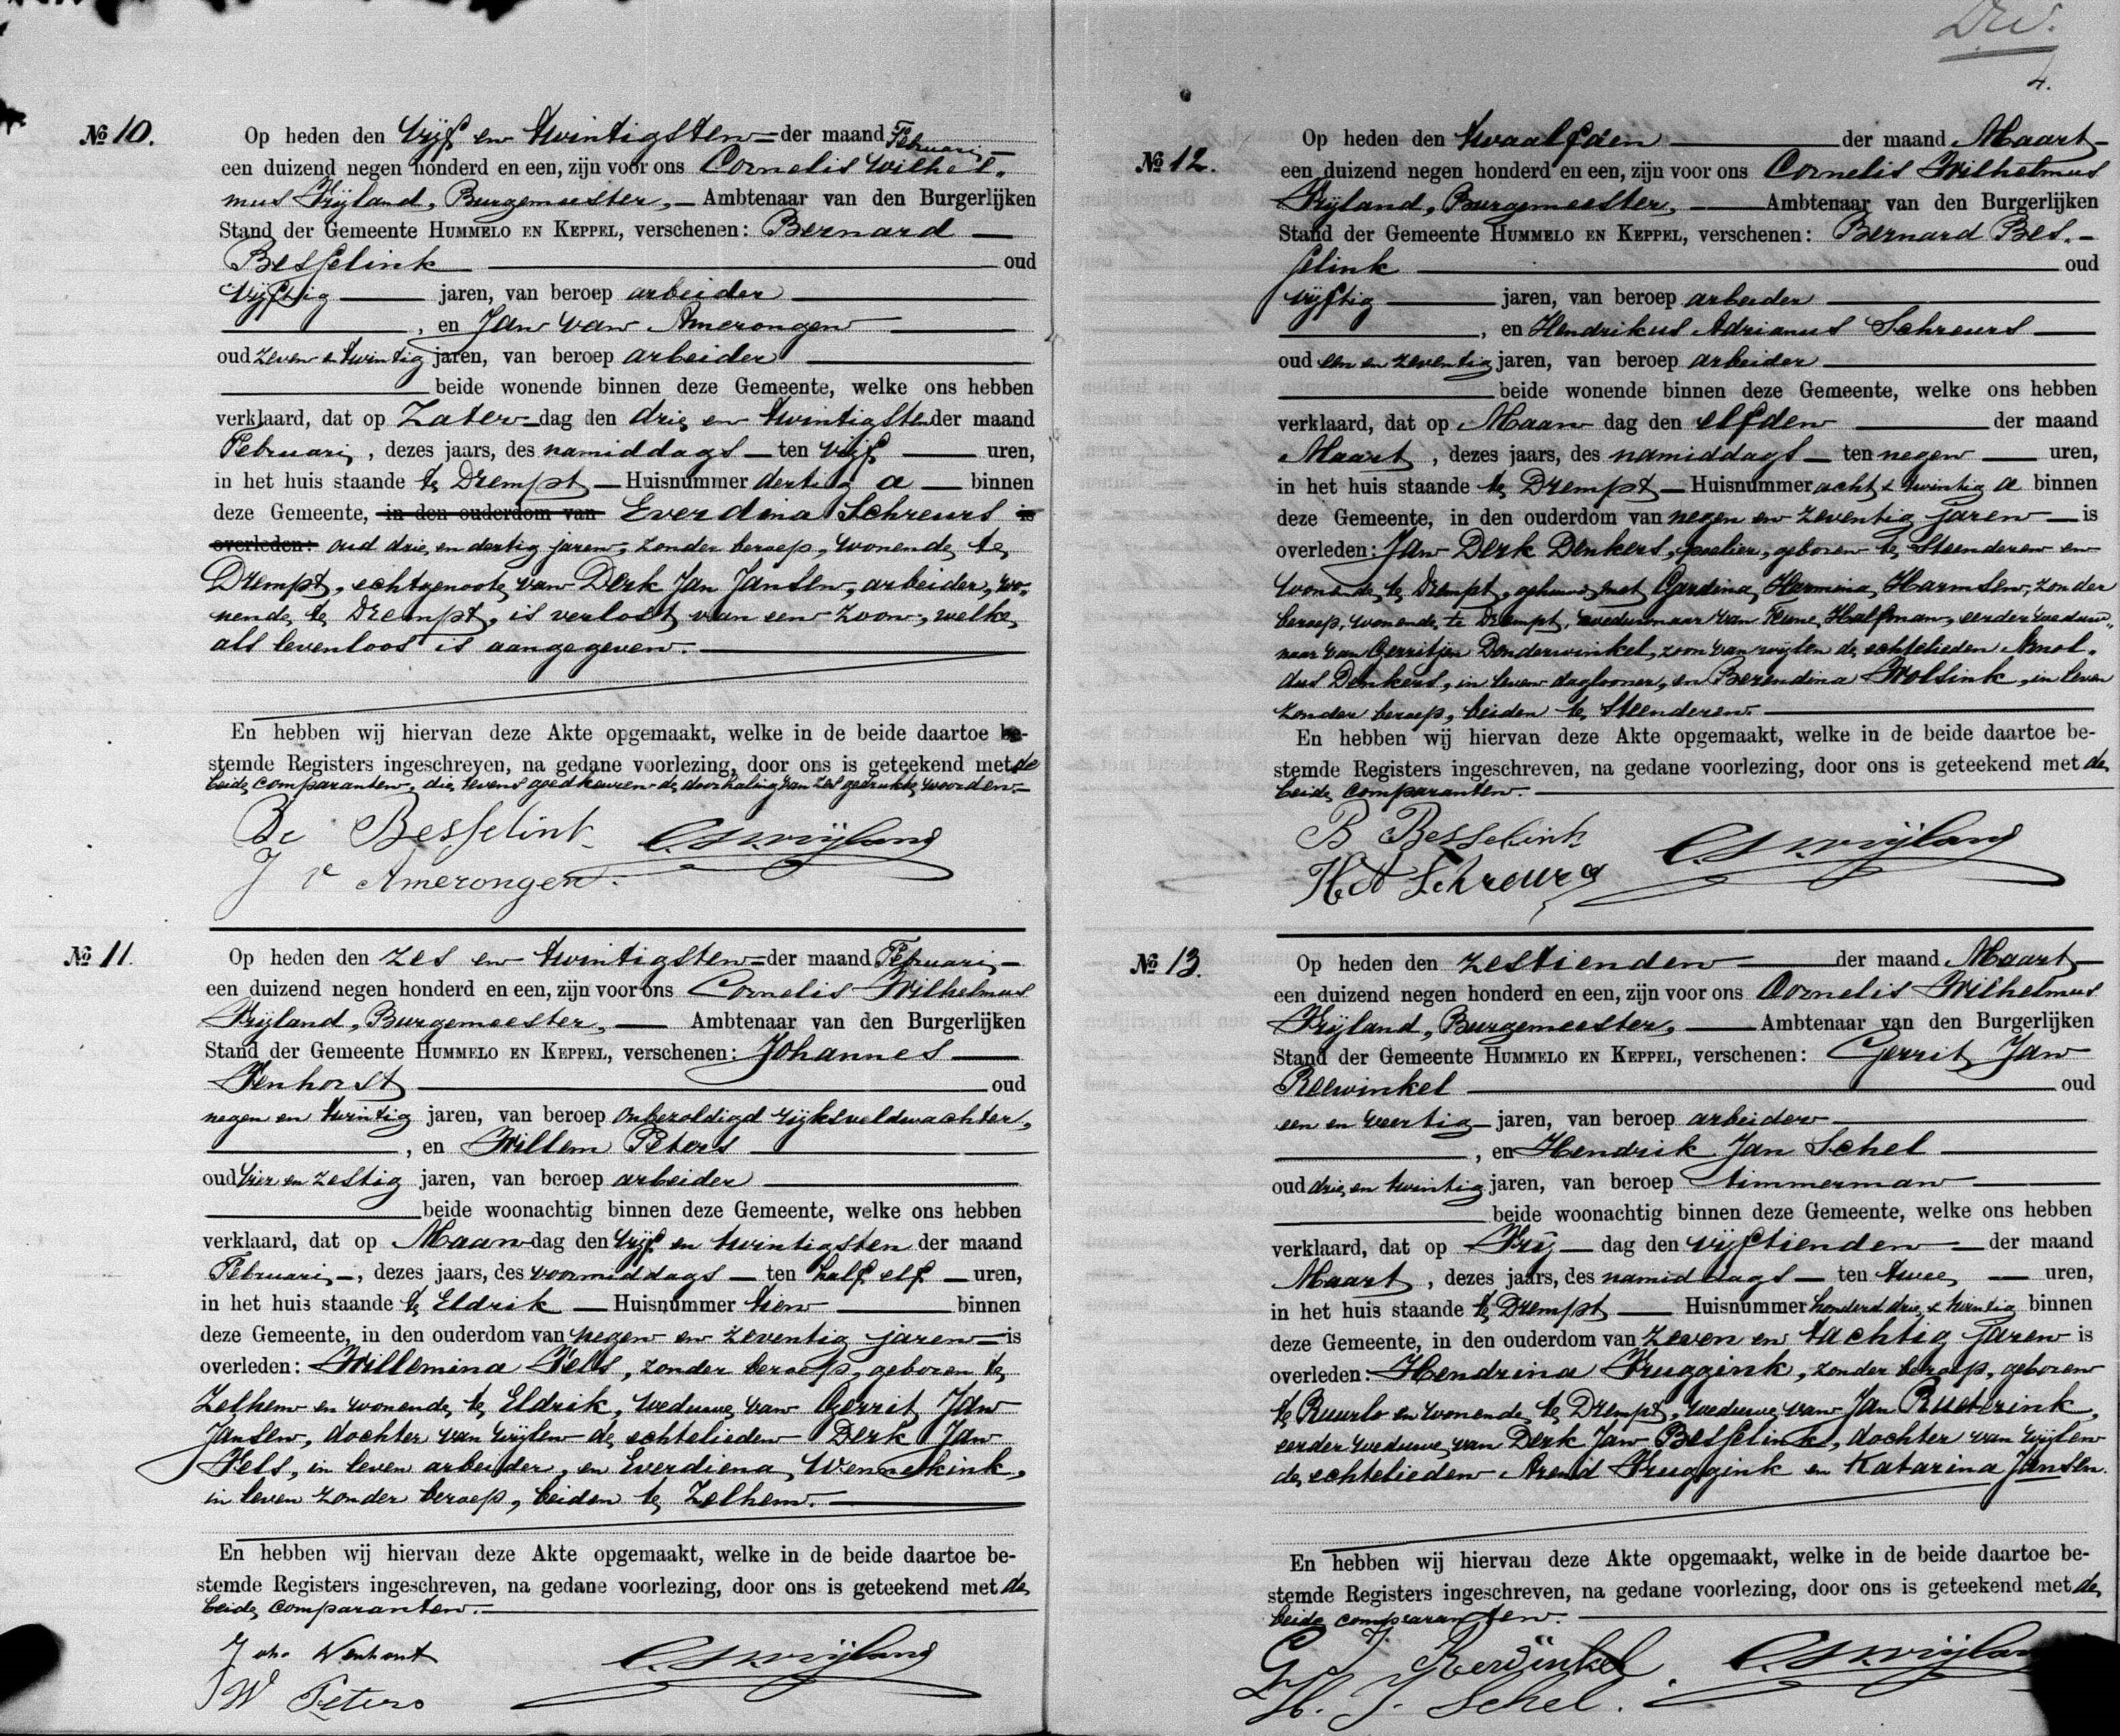 № 10.
Op heden den vijf en twintigsten der maand Februari
een duizend negen honderd en een, zijn voor ons Cornelis Wilhel-
mus Vrijland, Burgemeester, Ambtenaar van den Burgerlijken
Stand der Gemeente HUMMELO EN KEPPEL, verschenen: Bernard
Besselink oud
vijftig jaren, van beroep arbeider
, en Jan van Amerongen
oud zeven & twintig jaren, van beroep arbeider
beide wonende binnen deze Gemeente, welke ons hebben
verklaard, dat op Zater dag den drie en twintigsten der maand
Februari, dezes jaars, des namiddags ten vijf uren,
in het huis staande te Drempt Huisnummer dertig a binnen
deze Gemeente, in den ouderdom van Everdina Schreurs is
overleden: oud drie en dertig jaren, zonder beroep, wonende te
Drempt, echtgenoote van Derk Jan Jansen, arbeider, wo-
nende te Drempt, is verlost van een zoon, welke
als levenloos is aangegeven.
En hebben wij hiervan deze Akte opgemaakt, welke in de beide daartoe be-
stemde Registers ingeschreven, na gedane voorlezing, door ons is geteekend met de
beide comparanten, die tevens goedkeuren de doorhaling van zes gedrukte woorden.
Be Besselink CWVrijland
J v Amerongen.
№ 11.
Op heden den zes en twintigsten der maand Februari
een duizend negen honderd en een, zijn voor ons Cornelis Wilhelmus
Vrijland, Burgemeester, Ambtenaar van den Burgerlijken
Stand der Gemeente HUMMELO EN KEPPEL, verschenen: Johannes
Wenhorst oud
negen en twintig jaren, van beroep onbezoldigd rijksveldwachter,
, en Willem Peters
oud vier en zestig jaren, van beroep arbeider
beide woonachtig binnen deze Gemeente, welke ons hebben
verklaard, dat op Maan dag den vijf en twintigsten der maand
Februari, dezes jaars, des voormiddags ten half elf uren,
in het huis staande te Eldrik Huisnummer tien binnen
deze Gemeente, in den ouderdom van negen en zeventig jaren is
overleden: Willemina Fels, zonder beroep, geboren te
Zelhem en wonende te Eldrik, weduwe van Gerrit Jan
Jansen, dochter van wijlen de echtelieden Derk Jan
Fels, in leven arbeider, en Everdiena Wennekink,
in leven zonder beroep, beiden te Zelhem.
En hebben wij hiervan deze Akte opgemaakt, welke in de beide daartoe be-
stemde Registers ingeschreven, na gedane voorlezing, door ons is geteekend met de
beide comparanten.
Joh. Wenhorst CWVrijland
W Peters
4.
№ 12.
Op heden den twaalfden der maand Maart
een duizend negen honderd en een, zijn voor ons Cornelis Wilhelmus
Vrijland, Burgemeester, Ambtenaar van den Burgerlijken
Stand der Gemeente HUMMELO EN KEPPEL, verschenen: Bernard Bes-
selink oud
vijftig jaren, van beroep arbeider
, en Hendrikus Adrianus Schreurs
oud een en zeventig jaren, van beroep arbeider
beide wonende binnen deze Gemeente, welke ons hebben
verklaard, dat op Maan dag den elfden der maand
Maart, dezes jaars, des namiddags ten negen uren,
in het huis staande te Drempt Huisnummer acht & twintig a binnen
deze Gemeente, in den ouderdom van negen en zeventig jaren is
overleden: Jan Derk Denkers, poelier, geboren te Steenderen en
wonende te Drempt, gehuwd met Gardina Harmina Harmsen, zonder
beroep, wonende te Drempt, weduwnaar van Halfman, eerder weduw-
naar van Gerritjen Donderwinkel, zoon van wijlen de echtelieden Arnol-
dus Denkers, in leven daglooner, en Berendina Wolsink, in leven
zonder beroep, beiden te Steenderen.
En hebben wij hiervan deze Akte opgemaakt, welke in de beide daartoe be-
stemde Registers ingeschreven, na gedane voorlezing, door ons is geteekend met de
beide comparanten.
B Besselink CWVrijland
H A Schreurs
№ 13.
Op heden den zestienden der maand Maart
een duizend negen honderd en een, zijn voor ons Cornelis Wilhelmus
Vrijland, Burgemeester, Ambtenaar van den Burgerlijken
Stand der Gemeente HUMMELO EN KEPPEL, verschenen: Gerrit Jan
Reewinkel oud
een en veertig jaren, van beroep arbeider
, en Hendrik Jan Schel
oud drie en twintig jaren, van beroep timmerman
beide woonachtig binnen deze Gemeente, welke ons hebben
verklaard, dat op Vrij dag den vijftienden der maand
Maart, dezes jaars, des namiddags ten twee uren,
in het huis staande te Drempt Huisnummer honderd drie & twintig binnen
deze Gemeente, in den ouderdom van zeven en tachtig jaren is
overleden: Hendrina Kruggink, zonder beroep, geboren
te Ruurlo en wonende te Drempt, weduwe van Jan Rueterink,
eerder weduwe van Derk Jan Besselink, dochter van wijlen
de echtelieden Arend Kruggink en Katarina Jansen.
En hebben wij hiervan deze Akte opgemaakt, welke in de beide daartoe be-
stemde Registers ingeschreven, na gedane voorlezing, door ons is geteekend met de
beide comparanten.
G J. Rewinkel CWVrijland
H. J. Schel.